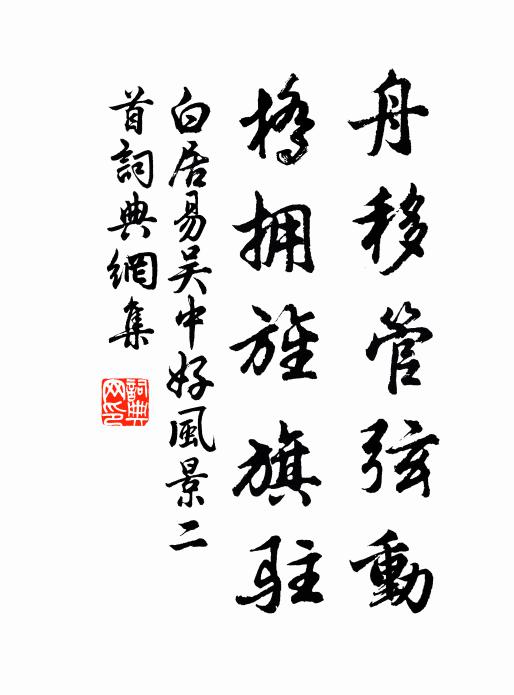 舟移管弦動
橋拥旌旗駐
白居易吴中好風景二
首詞典網集
詞典網印